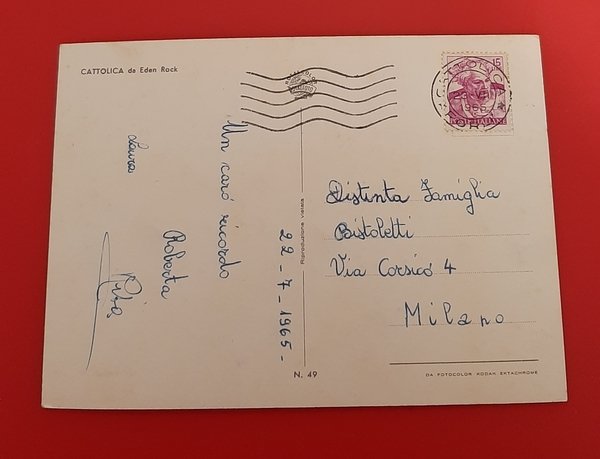 CATTOLICA da Eden Rock
15
CATTOLICA
1965
POSTE ITALIANE
Un caro ricordo
22-7-1965-
Laura
Roberta
Distinta Famiglia
Bistoletti
Via Corsico 4
Milano
Riproduzione vietata
N. 49
DA FOTOCOLOR KODAK EKTACHROME